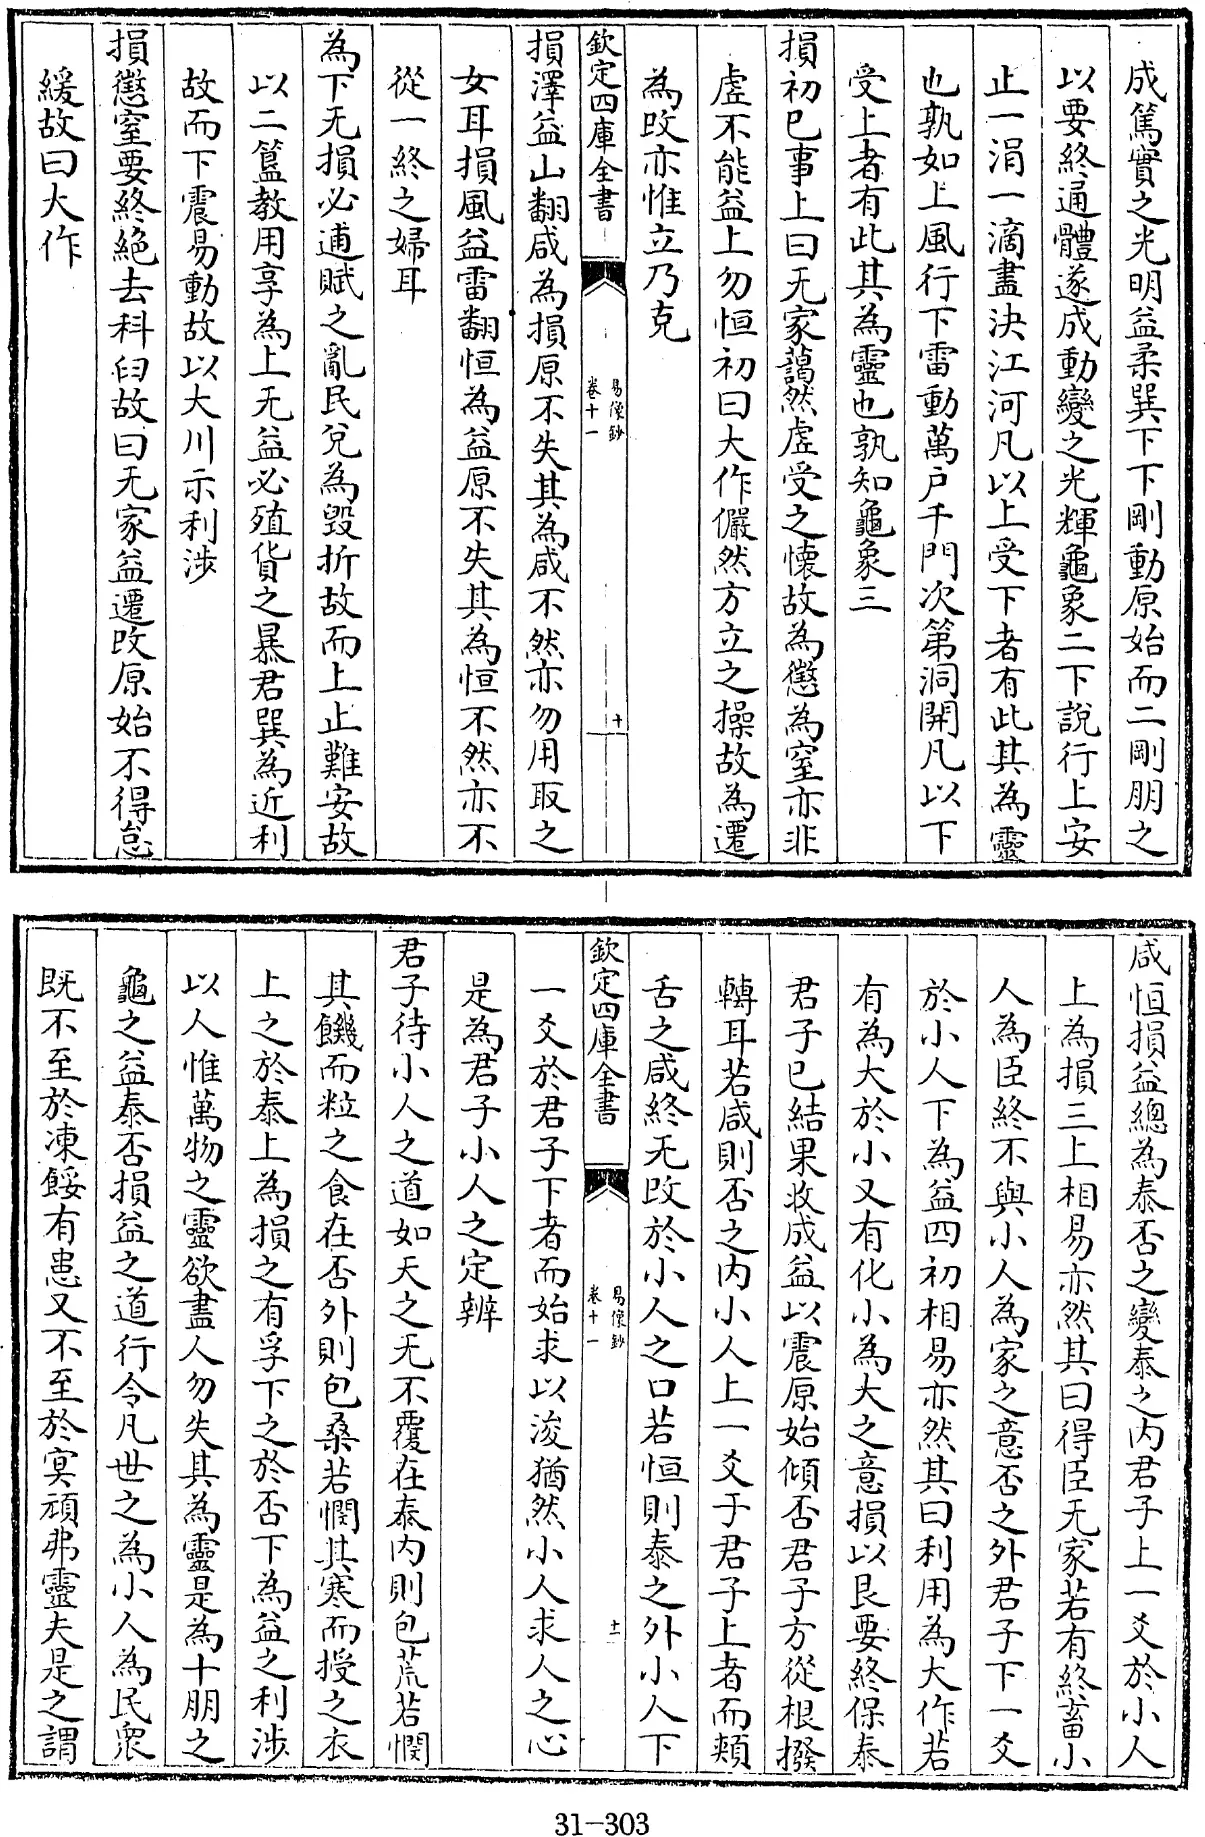 成篤實之光明益柔巽下下剛動原始而二剛朋之
以要終通體遂成動變之光輝龜象二下說行上安
止一涓一滴盡決江河凡以上受下者有此其為靈
也孰如上風行下雷動萬户千門次第洞開凡以下
受上者有此其為靈也孰知龜象三
損初已事上曰无家藹然虚受之懷故為懲為窒亦非
虚不能益上勿恒初曰大作儼然方立之操故為遷
為改亦惟立乃克
欽定四庫全書
易像鈔
卷十一
十
損澤益山翻咸為損原不失其為咸不然亦勿用取之
女耳損風益雷翻恒為益原不失其為恒不然亦不
從一終之婦耳
為下无損必逋賦之亂民兌為毀折故而上止難安故
以二簋教用享為上无益必殖貨之暴君巽為近利
故而下震易動故以大川示利涉
損懲窒要終絶去科臼故曰无家益遷改原始不得怠
緩故曰大作
咸恒損益總為泰否之變泰之内君子上一爻於小人
上為損三上相易亦然其曰得臣无家若有終畜小
人為臣終不與小人為家之意否之外君子下一爻
於小人下為益四初相易亦然其曰利用為大作若
有為大於小又有化小為大之意損以艮要終保泰
君子已結果收成益以震原始傾否君子方從根撥
轉耳若咸則否之内小人上一爻于君子上者而頰
舌之咸終无改於小人之口若恒則泰之外小人下
欽定四庫全書
易像鈔
卷十一
十一
一爻於君子下者而始求以浚猶然小人求人之心
是為君子小人之定辨
君子待小人之道如天之无不覆在泰内則包荒若憫
其饑而粒之食在否外則包桑若憫其寒而授之衣
上之於泰上為損之有孚下之於否下為益之利涉
以人惟萬物之靈欲盡人勿失其為靈是為十朋之
龜之益泰否損益之道行令凡世之為小人為民衆
既不至於凍餒有患又不至於冥頑弗靈夫是之謂
31-303